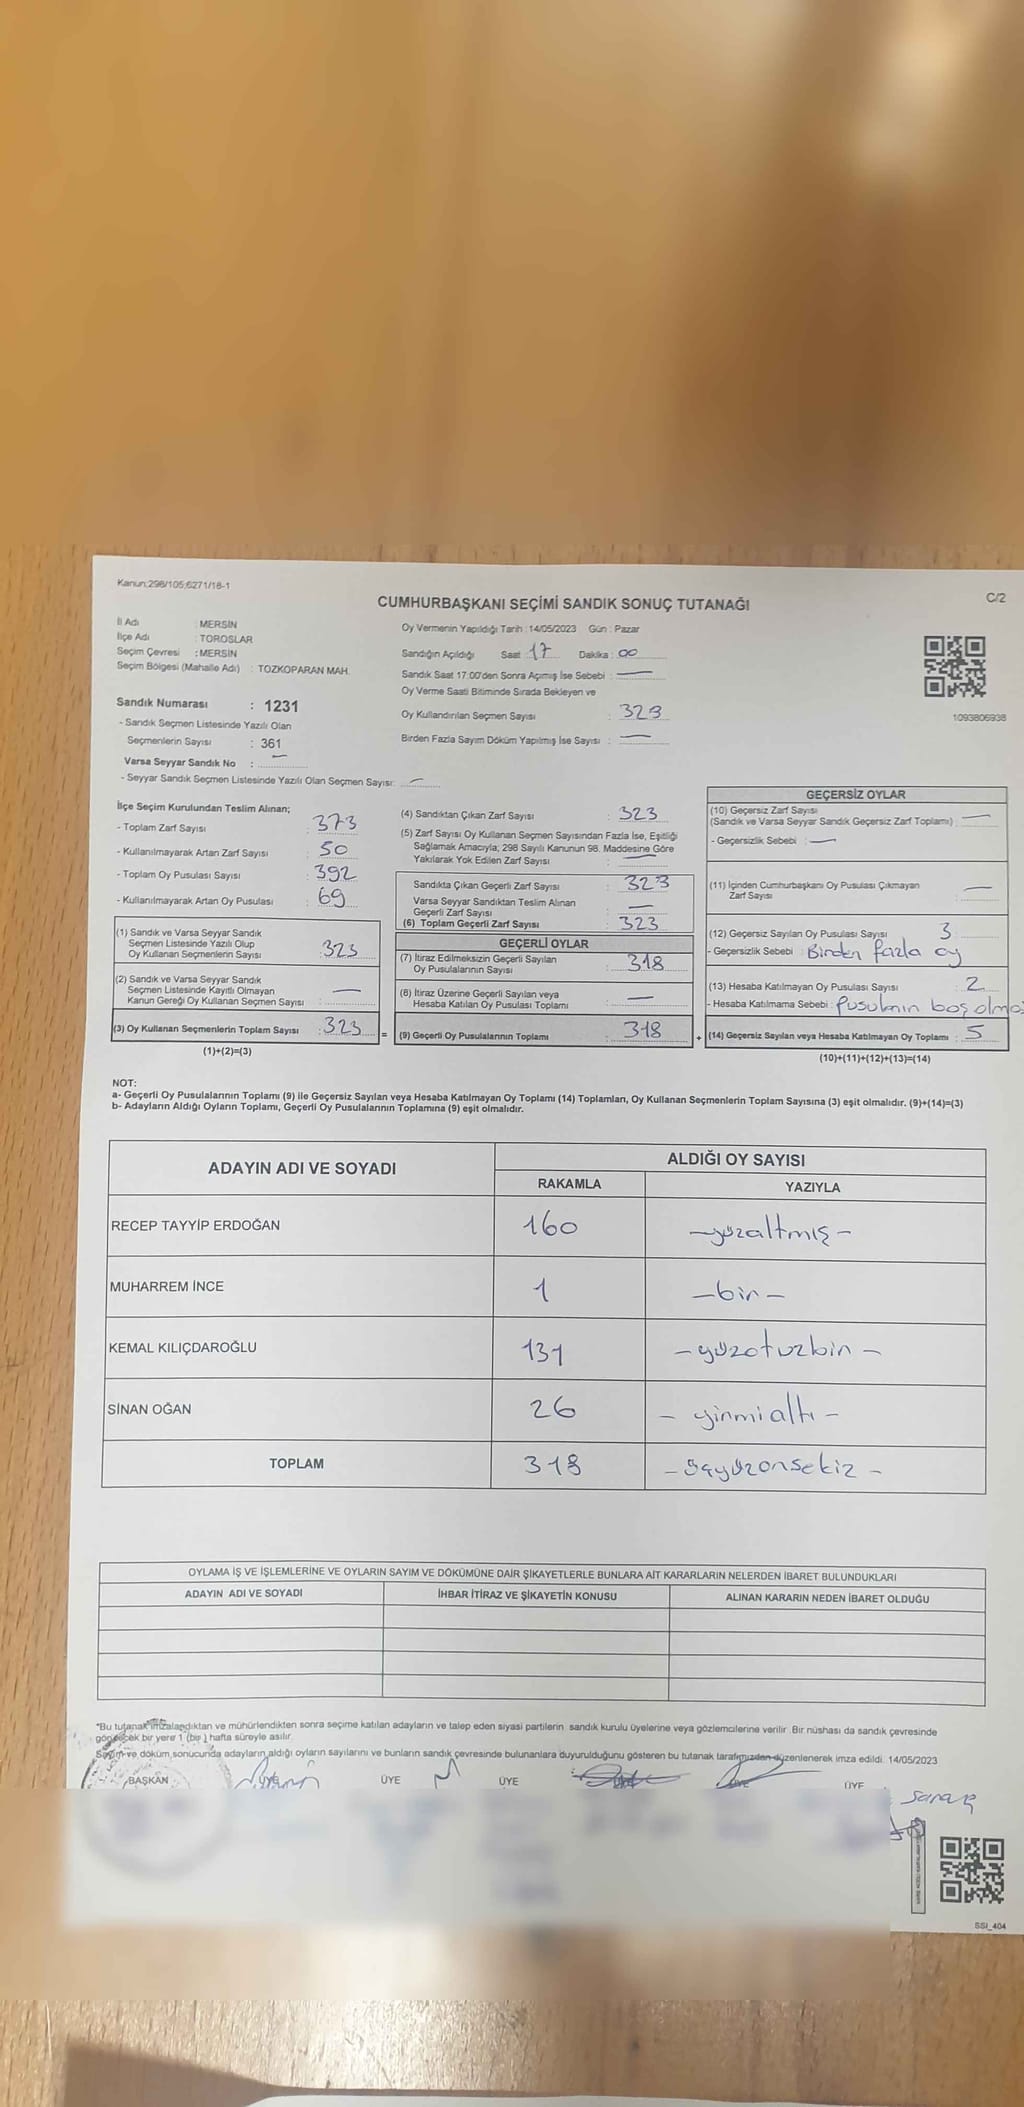 Kanun:298/105;6271/18-1
C/2
CUMHURBAŞKANI SEÇİMİ SANDIK SONUÇ TUTANAĞI
İl Adı : MERSİN
İlçe Adı : TOROSLAR
Seçim Çevresi : MERSİN
Seçim Bölgesi (Mahalle Adı) : TOZKOPARAN MAH.
Sandık Numarası : 1231
- Sandık Seçmen Listesinde Yazılı Olan
Seçmenlerin Sayısı : 361
Varsa Seyyar Sandık No : —
- Seyyar Sandık Seçmen Listesinde Yazılı Olan Seçmen Sayısı: —
Oy Vermenin Yapıldığı Tarih :14/05/2023 Gün : Pazar
Sandığın Açıldığı Saat : 17 Dakika : 00
Sandık Saat 17:00'den Sonra Açımış İse Sebebi : —
Oy Verme Saati Bitiminde Sırada Bekleyen ve
Oy Kullandırılan Seçmen Sayısı : 323
Birden Fazla Sayım Döküm Yapılmış İse Sayısı : —
1093806938
İlçe Seçim Kurulundan Teslim Alınan;
- Toplam Zarf Sayısı : 373
- Kullanılmayarak Artan Zarf Sayısı : 50
- Toplam Oy Pusulası Sayısı : 392
- Kullanılmayarak Artan Oy Pusulası : 69
(1) Sandık ve Varsa Seyyar Sandık
Seçmen Listesinde Yazılı Olup
Oy Kullanan Seçmenlerin Sayısı : 323
(2) Sandık ve Varsa Seyyar Sandık
Seçmen Listesinde Kayıtlı Olmayan
Kanun Gereği Oy Kullanan Seçmen Sayısı : —
(3) Oy Kullanan Seçmenlerin Toplam Sayısı : 323
(1)+(2)=(3)
(4) Sandıktan Çıkan Zarf Sayısı : 323
(5) Zarf Sayısı Oy Kullanan Seçmen Sayısından Fazla İse, Eşitliği
Sağlamak Amacıyla; 298 Sayılı Kanunun 98. Maddesine Göre
Yakılarak Yok Edilen Zarf Sayısı : —
Sandıkta Çıkan Geçerli Zarf Sayısı : 323
Varsa Seyyar Sandıktan Teslim Alınan
Geçerli Zarf Sayısı : —
(6) Toplam Geçerli Zarf Sayısı : 323
GEÇERLİ OYLAR
(7) İtiraz Edilmeksizin Geçerli Sayılan
Oy Pusulalarının Sayısı : 318
(8) İtiraz Üzerine Geçerli Sayılan veya
Hesaba Katılan Oy Pusulası Toplamı : —
= (9) Geçerli Oy Pusulalarının Toplamı : 318
GEÇERSİZ OYLAR
(10) Geçersiz Zarf Sayısı
(Sandık ve Varsa Seyyar Sandık Geçersiz Zarf Toplamı) : —
- Geçersizlik Sebebi : —
(11) İçinden Cumhurbaşkanı Oy Pusulası Çıkmayan
Zarf Sayısı : —
(12) Geçersiz Sayılan Oy Pusulası Sayısı : 3
- Geçersizlik Sebebi : Birden fazla oy
(13) Hesaba Katılmayan Oy Pusulası Sayısı : 2
- Hesaba Katılmama Sebebi : Pusulanın boş olma
+ (14) Geçersiz Sayılan veya Hesaba Katılmayan Oy Toplamı : 5
(10)+(11)+(12)+(13)=(14)
NOT:
a- Geçerli Oy Pusulalarının Toplamı (9) ile Geçersiz Sayılan veya Hesaba Katılmayan Oy Toplamı (14) Toplamları, Oy Kullanan Seçmenlerin Toplam Sayısına (3) eşit olmalıdır. (9)+(14)=(3)
b- Adayların Aldığı Oyların Toplamı, Geçerli Oy Pusulalarının Toplamına (9) eşit olmalıdır.
ADAYIN ADI VE SOYADI
ALDIĞI OY SAYISI
RAKAMLA YAZIYLA
RECEP TAYYİP ERDOĞAN 160 -yüzaltmış-
MUHARREM İNCE 1 -bir-
KEMAL KILIÇDAROĞLU 131 -yüzotuzbir-
SİNAN OĞAN 26 -yirmialtı-
TOPLAM 318 -üçyüzonsekiz-
OYLAMA İŞ VE İŞLEMLERİNE VE OYLARIN SAYIM VE DÖKÜMÜNE DAİR ŞİKAYETLERLE BUNLARA AİT KARARLARIN NELERDEN İBARET BULUNDUKLARI
ADAYIN ADI VE SOYADI İHBAR İTİRAZ VE ŞİKAYETİN KONUSU ALINAN KARARIN NEDEN İBARET OLDUĞU
*Bu tutanak imzalandıktan ve mühürlendikten sonra seçime katılan adayların ve talep eden siyasi partilerin sandık kurulu üyelerine veya gözlemcilerine verilir. Bir nüshası da sandık çevresinde
görülecek bir yere 1 (bir) hafta süreyle asılır.
Sayım ve döküm sonucunda adayların aldığı oyların sayılarını ve bunların sandık çevresinde bulunanlara duyurulduğunu gösteren bu tutanak tarafımızdan düzenlenerek imza edildi. 14/05/2023
BAŞKAN ÜYE ÜYE ÜYE ÜYE ÜYE
SSI_404